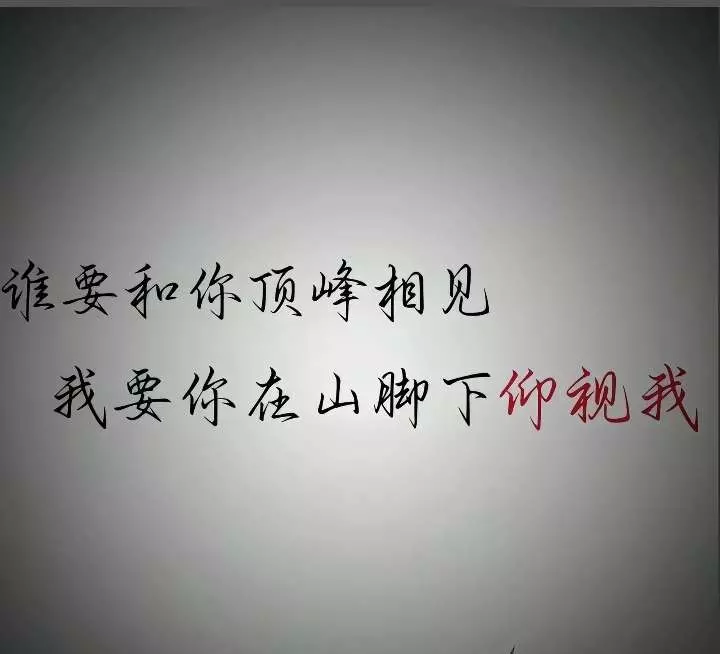 谁要和你顶峰相见
我要你在山脚下仰视我